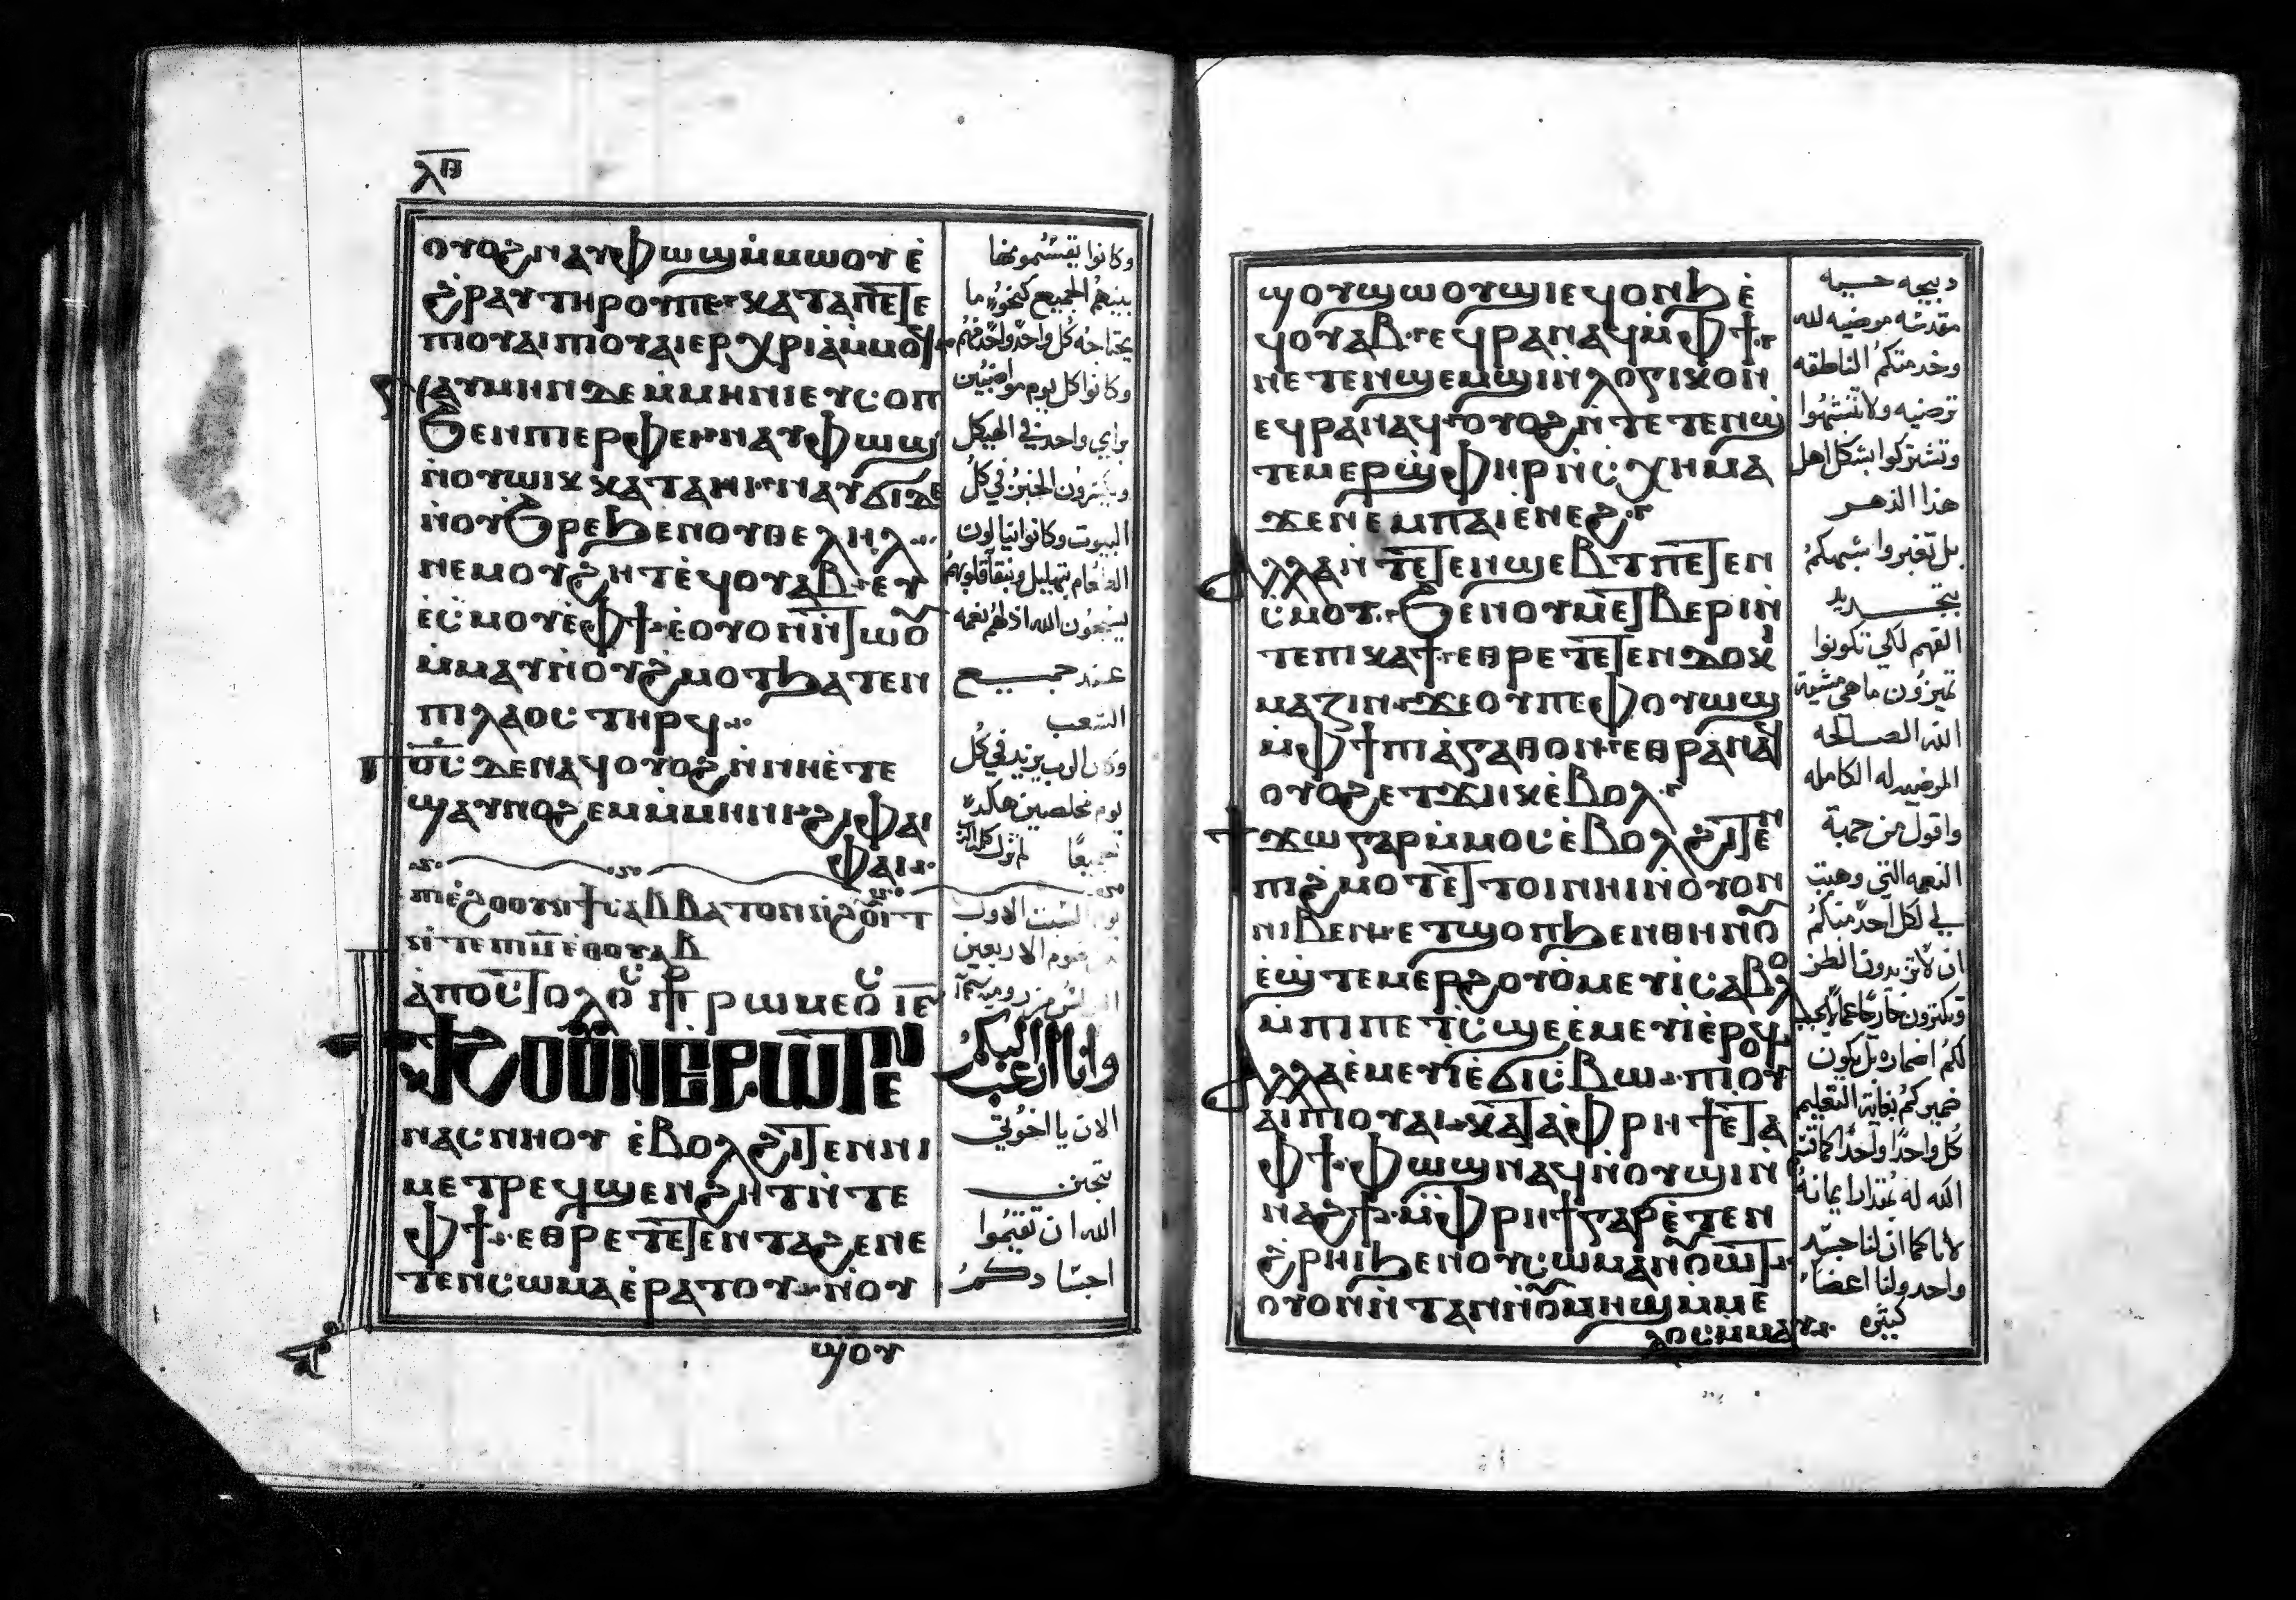 ⲗⲃ
ⲟⲩⲟϩ ⲛⲁⲩⲫⲱϣ ⲙ̀ⲙⲱⲟⲩ ⲉ̀
ϩⲣⲁⲩ ⲧⲏⲣⲟⲩ ⲡⲉ ⲕⲁⲧⲁ ⲡⲉⲧⲉ
ⲡⲓⲟⲩⲁⲓ ⲡⲓⲟⲩⲁⲓ ⲉⲣⲭⲣⲓⲁ̀ ⲙ̀ⲙⲟϥ
ⲛⲁⲩⲙⲏⲛ ⲇⲉ ⲙ̀ⲙⲏⲛⲓ ⲉⲩⲥⲟⲡ
ϧⲉⲛ ⲡⲓⲉⲣⲫⲉⲓ ⲛⲁⲩⲫⲱϣ
ⲛ̀ⲟⲩⲱⲓⲕ ⲕⲁⲧⲁ ⲏⲓ ⲛⲁⲩϭⲓ ⲇⲉ
ⲛ̀ⲟⲩϧⲣⲉ ϧⲉⲛ ⲟⲩⲑⲉⲗⲏⲗ
ⲛⲉⲙ ⲟⲩϩⲏⲧ ⲉ̀ϥⲟⲩⲁⲃ ⲉⲩ
ⲉ̀ⲥⲙⲟⲩ ⲉ̀ⲫϯ ⲉ̀ⲟⲩⲟⲛⲛ̀ⲧⲱⲟⲩ
ⲙ̀ⲙⲁⲩ ⲛ̀ⲟⲩϩⲙⲟⲧ ϧⲁⲧⲉⲛ
ⲡⲓⲗⲁⲟⲥ ⲧⲏⲣϥ
ⲡⲟ̅ⲥ̅ ⲇⲉ ⲛⲁϥⲟⲩⲟϩ ⲛ̀ⲛⲏⲉ̀ⲧⲉ
ϣⲁⲩⲛⲟϩⲉⲙ ⲙ̀ⲙⲏⲛⲓ ϩⲓ ⲫⲁⲓ
ⲫⲁⲓ
ⲡⲓⲉ̀ϩⲟⲟⲩ ⲛ̀ϯⲥⲁⲃⲃⲁⲧⲟⲛ ⲛ̀ϩⲟⲩⲓⲧ
ⲛ̀ⲧⲉ ⲡⲓⲙ̅ ⲉⲑⲟⲩⲁⲃ
ⲁ̀ⲡⲟⲥⲧⲟⲗⲟⲥ ⲡⲣ ⲣⲱⲙⲉⲟⲥ ⲓⲃ
ϯϯϩⲟ ⲟⲩⲛ ⲉⲣⲱⲧⲉⲛ
ⲛⲁⲥⲛⲏⲟⲩ ⲉ̀ⲃⲟⲗ ϩⲓⲧⲉⲛ ⲛⲓ
ⲙⲉⲧⲣⲉϥϣⲉⲛϩⲏⲧ ⲛ̀ⲧⲉ
ⲫϯ ⲉⲑⲣⲉⲧⲉⲧⲉⲛⲧⲁϩⲉ ⲛⲉ
ⲧⲉⲛⲥⲱⲙⲁ ⲉ̀ⲣⲁⲧⲟⲩ ⲛ̀ⲟⲩ
ϣⲟⲩ
وكانوا يقسمونها
بينهم الجميع كنحو ما
يحتاجه كل واحد واحد منهم
وكانوا كل يوم مواضبين
براي واحد في الهيكل
ويكسرون الخبز في كل
البيوت وكانوا ينالون
الطعام بتهليل وبنقاء قلوبهم
يسبحون الله اذ لهم نعمه
عند جميع
الشعب
وكان الرب يزيد في كل
يوم مخلصين هكذا
جميعًا
السبت الاول
صوم الاربعين
وانا اطلب اليكم
الان يا اخوتي
بتحنن
الله ان تقيموا
اجسادكم
ϣⲟⲩϣⲱⲟⲩϣⲓ ⲉϥⲟⲛϧ ⲉ̀
ϥⲟⲩⲁⲃ ⲉϥⲣⲁⲛⲁϥ ⲙ̀ⲫϯ
ⲡⲉⲧⲉⲛϣⲉⲙϣⲓ ⲛ̀ⲗⲟⲅⲓⲕⲟⲛ
ⲉϥⲣⲁⲛⲁϥ ⲟⲩⲟϩ ⲛ̀ⲧⲉⲧⲉⲛϣ
ⲧⲉⲙⲉⲣϣ̀ⲫⲏⲣ ⲛ̀ⲥⲭⲏⲙⲁ
ϫⲉⲛ ⲉⲙ ⲡⲁⲓⲉ̀ⲛⲉϩ
ⲁⲗⲗⲁ ⲛ̀ⲧⲉⲧⲉⲛϣⲉⲃⲧ ⲡⲉⲧⲉⲛ
ⲥⲙⲟⲧ ϧⲉⲛ ⲟⲩⲙⲉⲧⲃⲉⲣⲓ ⲛ̀
ⲧⲉ ⲡⲓⲕⲁϯ ⲉⲑⲣⲉⲧⲉⲧⲉⲛⲇⲟⲕⲓ
ⲙⲁⲍⲓⲛ ϫⲉ ⲟⲩ ⲡⲉ ⲫⲟⲩⲱϣ
ⲙ̀ⲫϯ ⲡⲓⲁ̀ⲅⲁⲑⲟⲛ ⲉⲑⲣⲁⲛⲁϥ
ⲟⲩⲟϩ ⲉⲧϫⲏⲕ ⲉ̀ⲃⲟⲗ
ϯϫⲱ ⲅⲁⲣ ⲙ̀ⲙⲟⲥ ⲉ̀ⲃⲟⲗ ϩⲓⲧⲉⲛ
ⲡⲓϩⲙⲟⲧ ⲉⲧⲧⲟⲓ ⲛⲏⲓ ⲛ̀ⲟⲩⲟⲛ
ⲛⲓⲃⲉⲛ ⲉⲧϣⲟⲡ ϧⲉⲛ ⲑⲏⲛⲟⲩ
ⲉ̀ϣ̀ⲧⲉⲙⲉⲣϩⲟⲩⲟ̀ ⲙⲉⲩⲓ ⲥⲁⲃⲟⲗ
ⲙ̀ⲡⲓⲡⲉⲧⲥϣⲉ ⲉ̀ⲙⲉⲩⲓ ⲉ̀ⲣⲟϥ
ⲁⲗⲗⲁ ⲉ̀ⲙⲉⲩⲓ ⲉ̀ϭⲓⲥⲃⲱ ⲡⲓⲟⲩ
ⲁⲓ ⲡⲓⲟⲩⲁⲓ ⲕⲁⲧⲁ ⲫⲣⲏϯ ⲉ̀ⲧⲁ
ⲫϯ ⲫⲱϣ ⲛⲁϥ ⲛ̀ⲟⲩϣⲓ ⲛ̀
ⲛⲁϩϯ ⲙ̀ⲫⲣⲏϯ ⲅⲁⲣ ⲉ̀ⲧⲉⲛ
ϩ̀ⲣⲏⲓ ϧⲉⲛ ⲟⲩⲥⲱⲙⲁ ⲛ̀ⲟⲩⲱⲧ
ⲟⲩⲟⲛ ⲛ̀ⲧⲁⲛ ⲛ̀ⲟⲩⲙⲏϣ ⲙ̀ⲙⲉ
ⲗⲟⲥ ⲙ̀ⲙⲁⲩ
دبيحه حييه
مقدسه مرضيه لله
وخدمتكم الناطقه
ترضيه ولا تتشبهوا
وتشتركوا بشكل اهل
هذا الدهر
بل تغيروا شبهكم
بتجديد
الفهم لكي تكونوا
تميزون ما هي مشية
الله الصالحه
المرضيه له الكامله
واقول من جهة
النعمه التي وهبت
لي لكل احد منكم
ان لا تزيدون الظن
وتفكرون خارجًا عما يجب
لكم اضماره بل يكون
ضميركم بغاية التعليم
كل واحدًا واحدًا كما قسم
الله له مقدار ايمانه
لانا كما ان لنا جسد
واحد ولنا اعضاء
كثيره